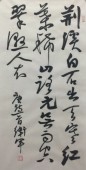 荆溪白石出天寒红
葉稀山路元无雨空
翠濕人衣